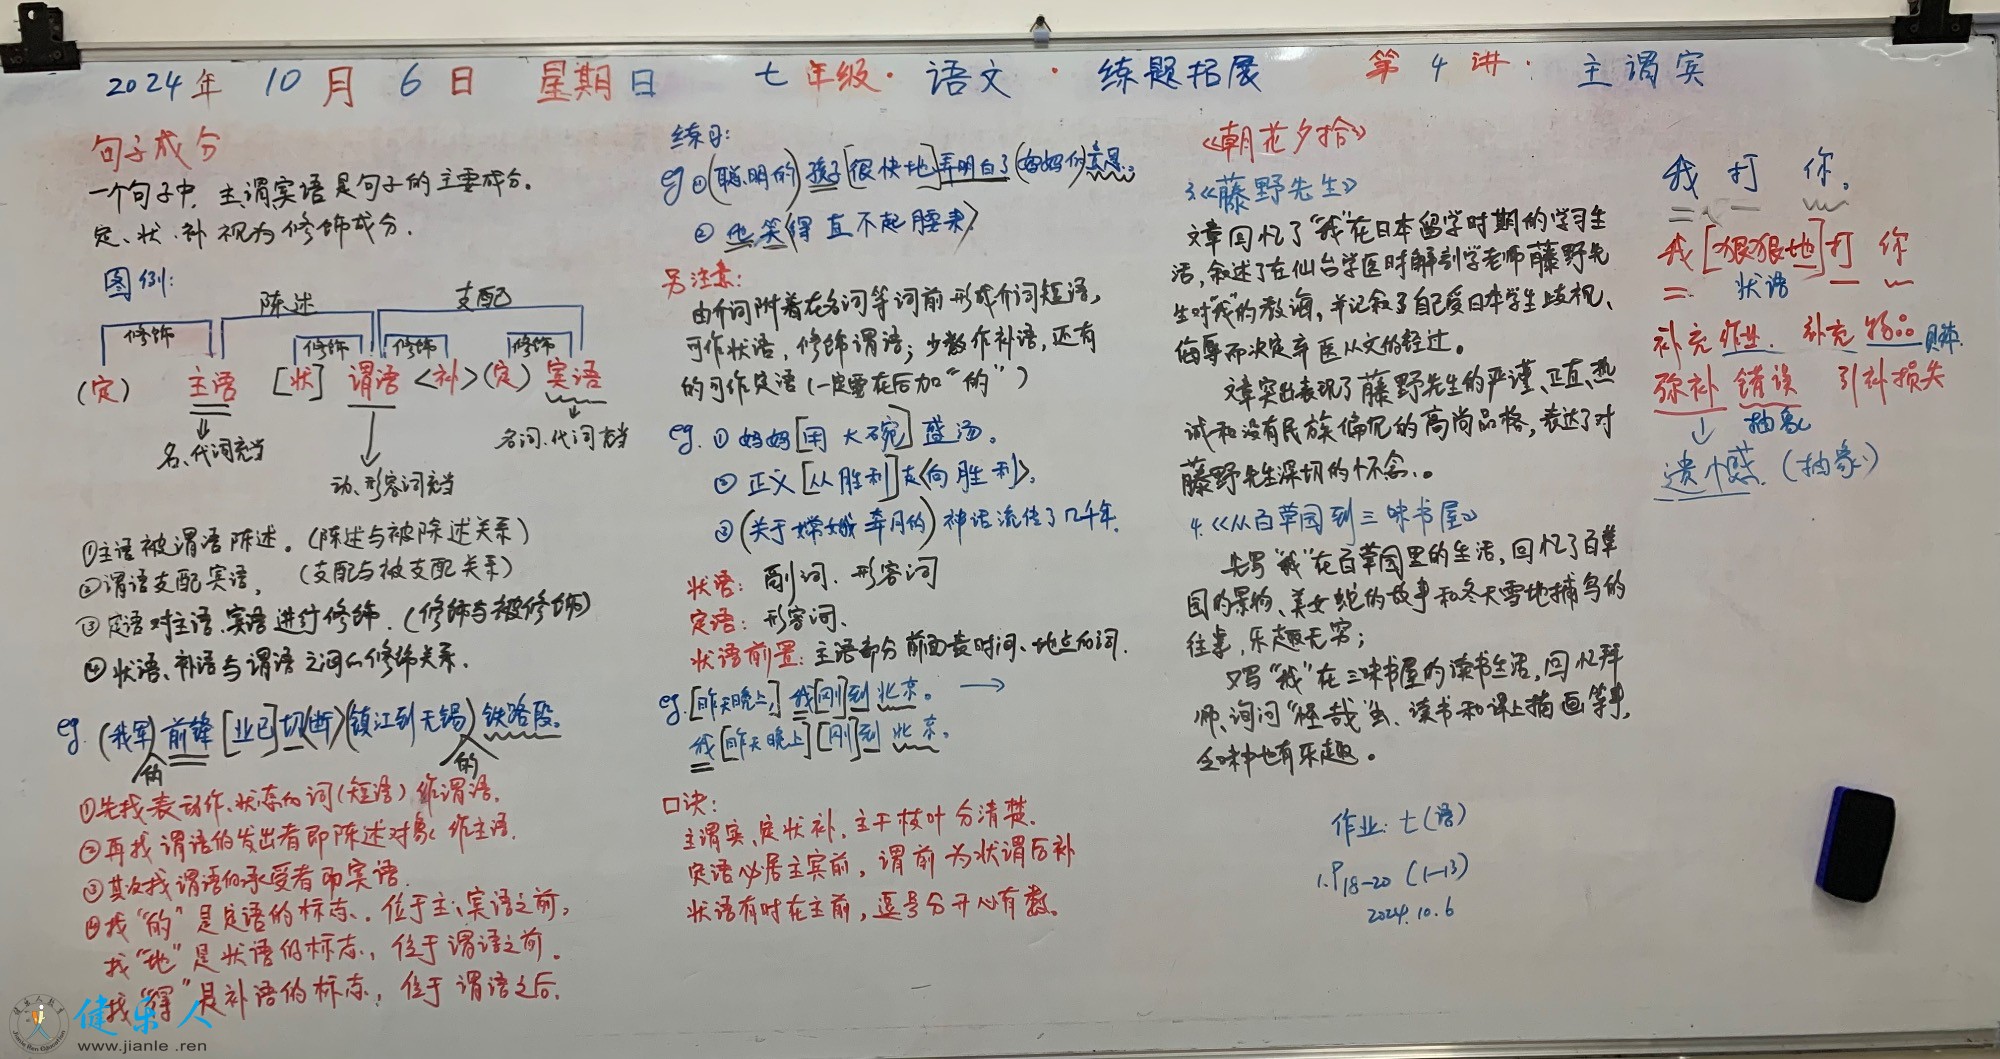 2024年 10月 6日 星期日 七年级·语文·练题拓展 第4讲: 主谓宾
句子成分
一个句子中,主、谓、宾语是句子的主要成分。
定、状、补视为修饰成分.
图例:
陈述 支配
修饰 修饰 修饰 修饰
(定) 主语 [状] 谓语 <补> (定) 宾语
名、代词充当 动、形容词充当 名词、代词充当
①主语被谓语陈述。(陈述与被陈述关系)
②谓语支配宾语, (支配与被支配关系)
③定语对主语、宾语进行修饰.(修饰与被修饰)
④状语、补语与谓语之间的修饰关系.
eg. (我军)前锋[业已]切<断>(镇江到无锡)铁路段。
的 的
①先找表动作、状态的词(短语)作谓语.
②再找谓语的发出者即陈述对象作主语.
③其次找谓语的承受者即宾语.
④找“的”是定语的标志。位于主、宾语之前,
找“地”是状语的标志,位于谓语之前.
找“得”是补语的标志,位于谓语之后.
练习:
eg ①(聪明的)孩子[很快地]弄明白了(妈妈的)意思。
②他笑<得直不起腰来>
另注意:
由介词附着在名词等词前形成介词短语,
可作状语,修饰谓语;少数作补语,还有
的可作定语(一定要在后加“的”)
eg. ①妈妈[用大碗]盛汤。
②正义[从胜利]走<向胜利>.
③(关于嫦娥奔月的)神话流传了几千年.
状语: 副词、形容词
定语: 形容词、
状语前置: 主语部分前面表时间、地点的词.
eg. [昨天晚上,]我[刚]到北京。 →
我[昨天晚上][刚]到北京。
口诀:
主谓宾、定状补,主干枝叶分清楚.
定语必居主宾前,谓前为状谓后补
状语有时在主前,逗号分开心有数。
《朝花夕拾》
3.《藤野先生》
文章回忆了“我”在日本留学时期的学习生
活,叙述了在仙台学医时解剖学老师藤野先
生对“我”的教诲,并记叙了自己受日本学生歧视、
侮辱而决定弃医从文的经过。
文章突出表现了藤野先生的严谨、正直、热
诚和没有民族偏见的高尚品格,表达了对
藤野先生深切的怀念。
4.《从百草园到三味书屋》
先写“我”在百草园里的生活,回忆了百草
园的景物、美女蛇的故事和冬天雪地捕鸟的
往事,乐趣无穷;
又写“我”在三味书屋的读书生活,回忆拜
师、询问“怪哉”虫、读书和课上描画等事,
乏味中也有乐趣。
作业: 七(语)
1. P18-20 (1-13)
2024.10.6
我 打 你。
我[狠狠地]打 你
状语
补充作业. 补充物品 具体.
弥补 错误 引补损失
抽象
遗憾. (抽象)
健乐人
www.jianle.ren